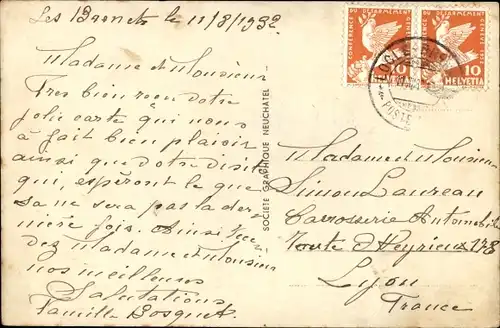 Les Brenets le 11/8/1932.
Madame et Monsieur
Tres bien reçu votre
jolie carte qui nous
à fait bien plaisir
ainsi que votre visite
qui, espéront le que
sa ne sera pas la der
nière fois. Ainsi rece
vez Madame et Monsieur
nos meilleures
Salutations
Famille Bosquet.
SOCIÉTÉ GRAPHIQUE NEUCHATEL
CONFÉRENCE DU DÉSARMEMENT GENÈVE 1932
10
HELVETIA
CONFÉRENCE DU DÉSARMEMENT GENÈVE 1932
10
HELVETIA
LOCLE
Madame et Monsieur
Simon Laureau
Carrosserie Automobile
Route d'Heyrieux 178
Lyon
France